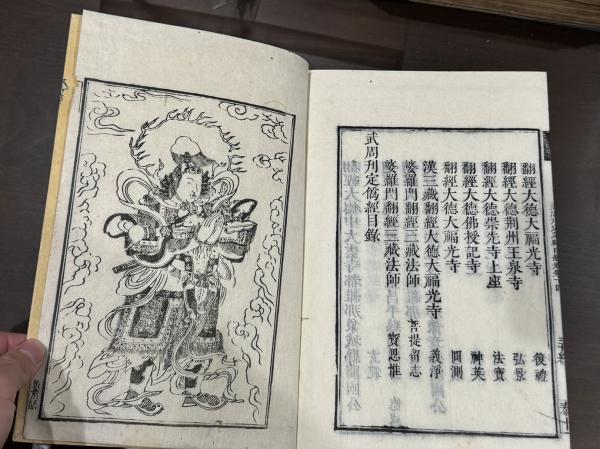 翻經大德大福光寺 復禮
翻經大德荆州玉泉寺 弘景
翻經大德崇先寺上座 法寶
翻經大德佛授記寺 神英
翻經大德大福光寺 圓測
漢三藏翻經大德大福光寺 義淨
婆羅門翻經三藏法師 菩提留志
婆羅門翻經三藏法師 寶思惟
武周刊定僞經目錄